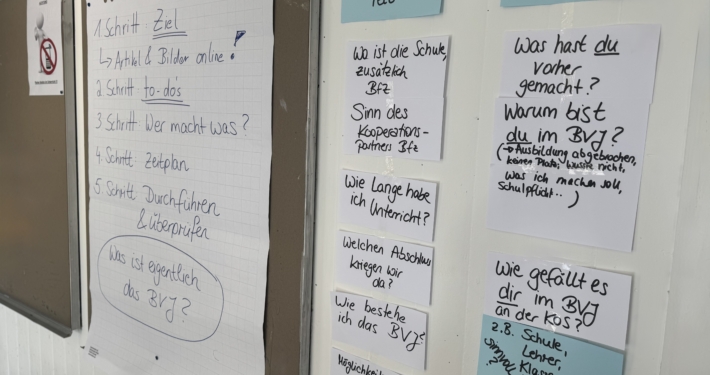 1. Schritt: Ziel
↳ Artikel & Bilder online!
2. Schritt to-do's
3. Schritt Wer macht was?
4. Schritt: Zeitplan
5. Schritt: Durchführen
& überprüfen
Was ist eigentlich
das BVJ?
Wo ist die Schule,
zusätzlich
Bfz
Sinn des
Kooperations-
partners Bfz
Wie lange habe
ich Unterricht?
Welchen Abschluss
kriegen wir
da?
Wie bestehe
ich das BVJ?
Möglichkeit
Was hast du
vorher
gemacht?
Warum bist
du im BVJ?
(→ Ausbildung abgebrochen,
keinen Platz, wusste nicht,
was ich machen soll,
Schulpflicht.. )
Wie gefällt es
dir im BVJ
an der Kos?
z.B. Schule,
Lehrer,
Klasse